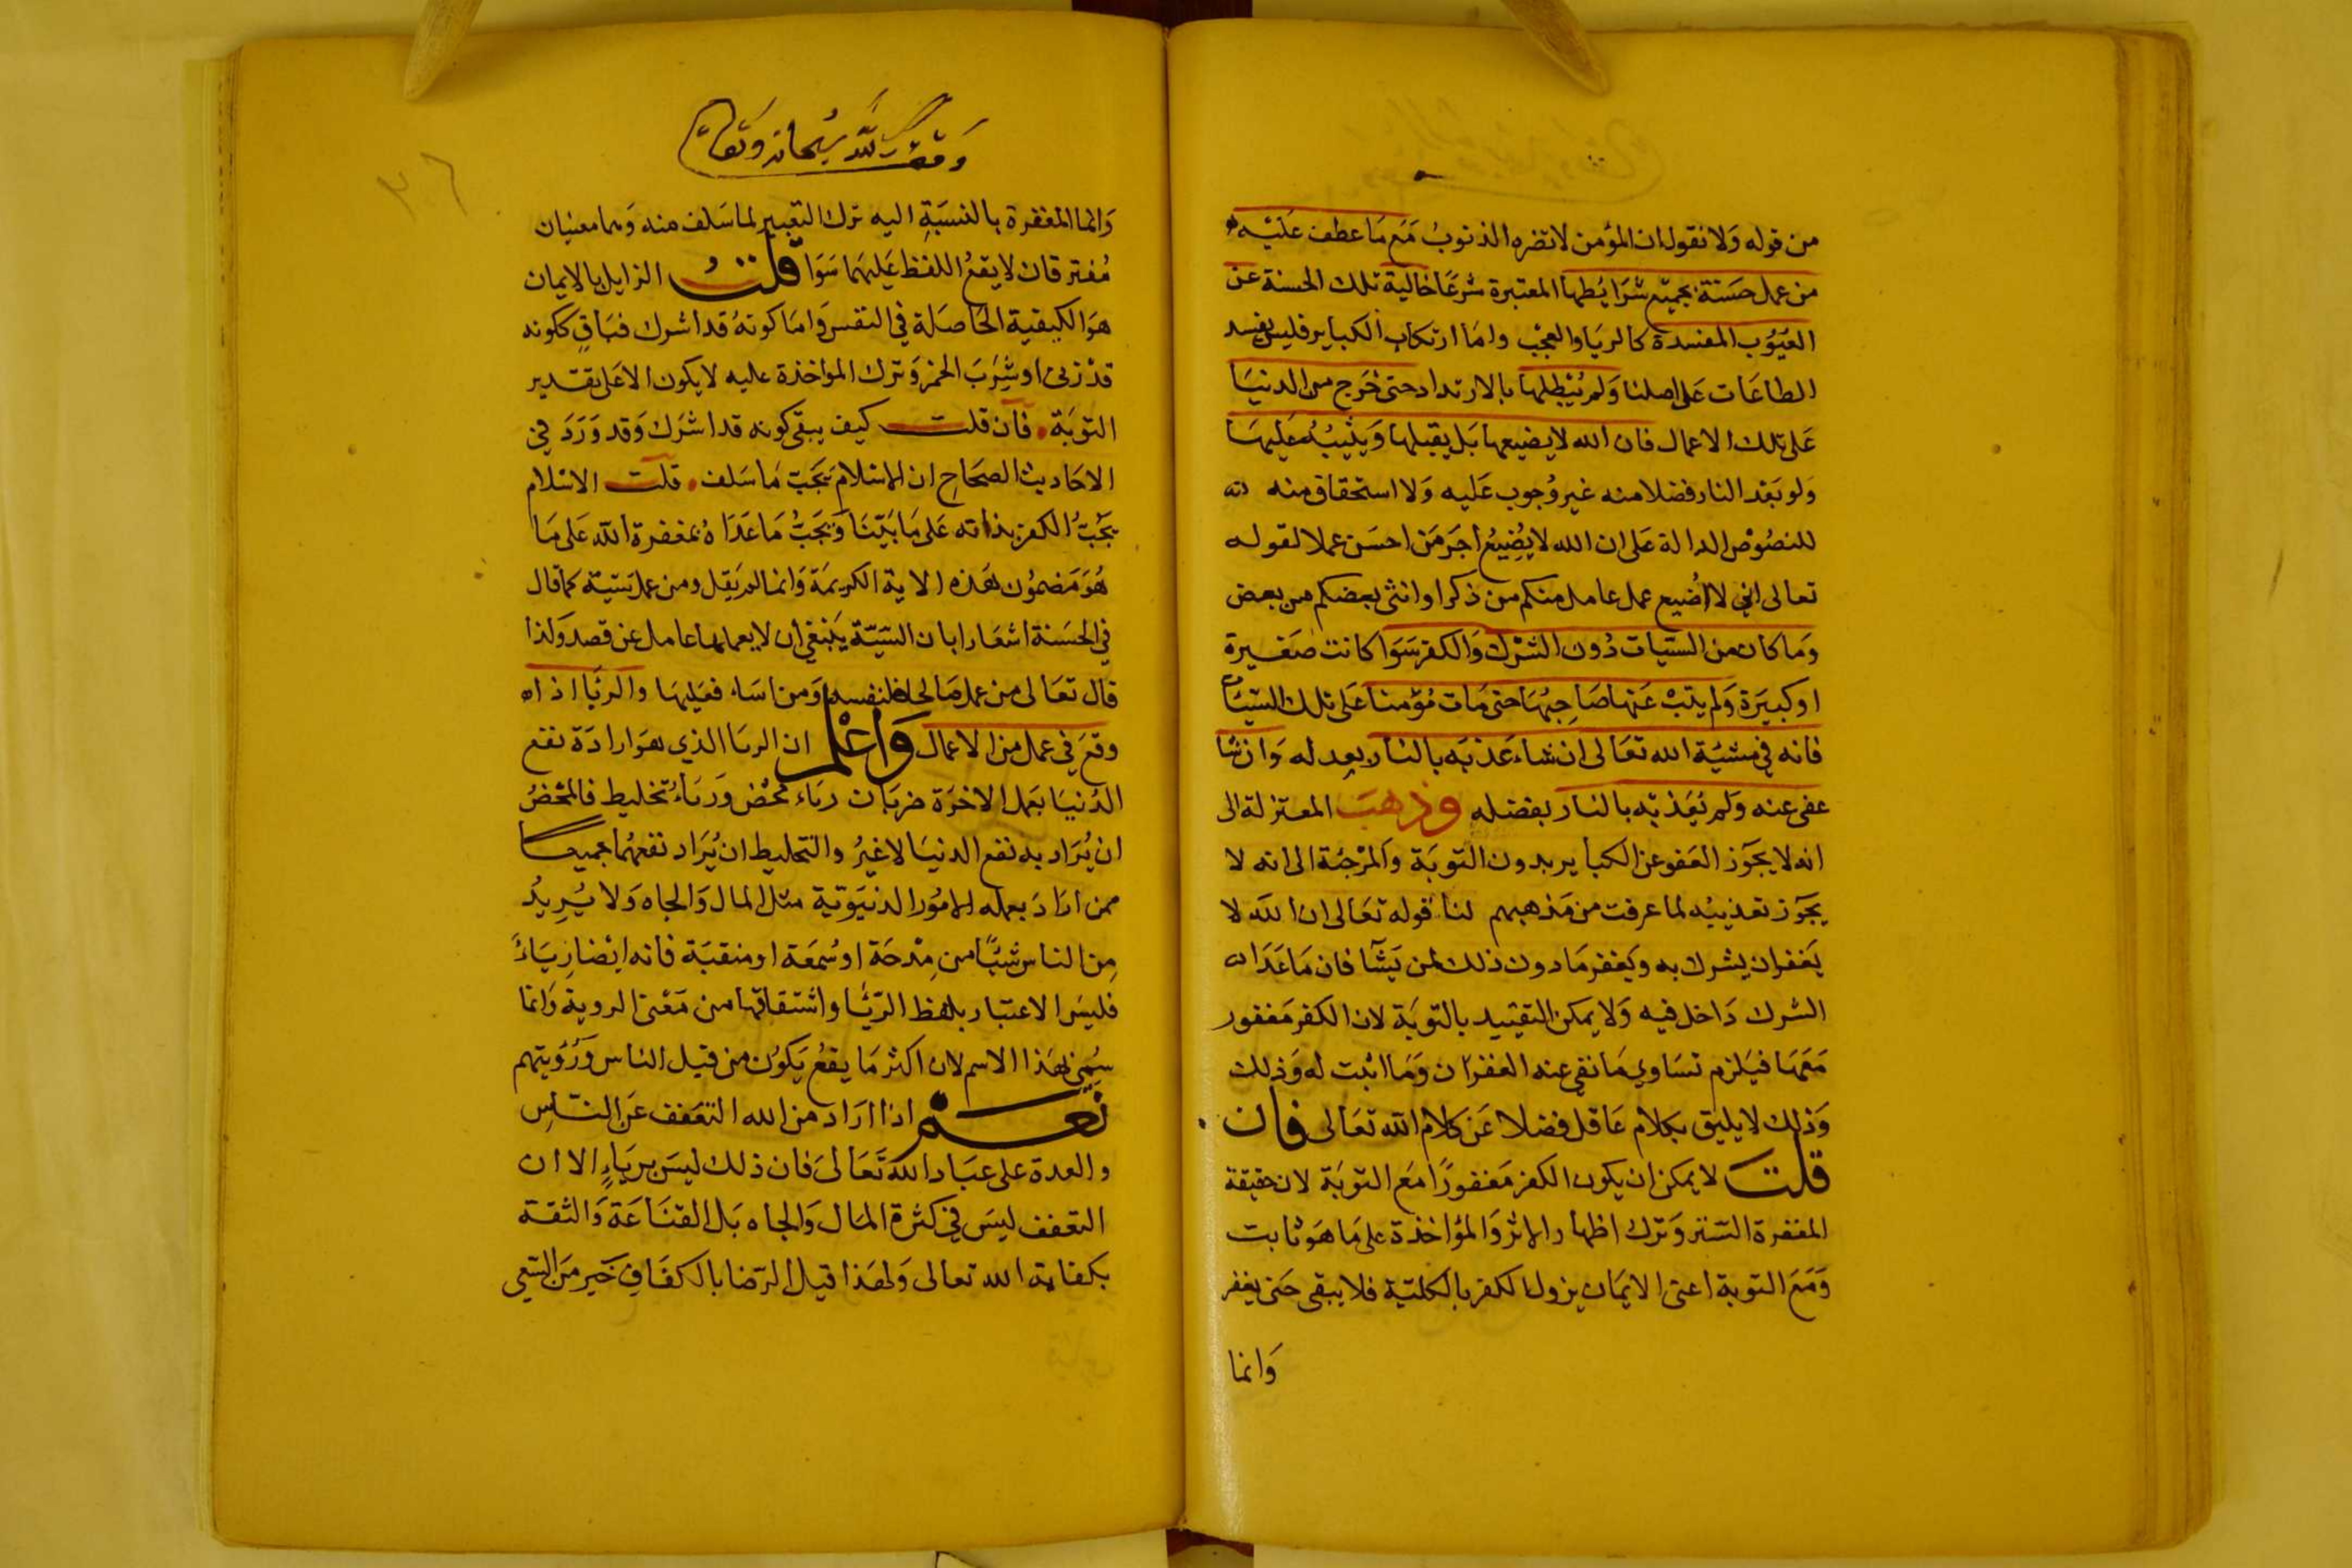 من قوله ولا نقول ان المؤمن لا تضره الذنوبُ مَع مَا عطف عَليْه
من عمل حسَنة بجميْع شرَايُطها المعتبرة شرعًا خالية تلك الحسنة عن
العيُوب المفسدة كالريَا والعجْب واما ارتكاب الكبايرفليس يفسد
الطاعَات عَلى اصلنا وَلم يُبْطلها بالارتداد حتى خرَج من الدنيَا
عَلى تلك الاعمال فان الله لا يضيعها بَل يقبلها وَيثيبُه عَليهَا
وَلو بَعْد النار فضلا منه غير وُجوب عَليه وَلا استحقاق منه
للنصُوْص الدالة عَلى ان الله لا يُضِيعُ اجَر مَن احسَن عملا لقوله
تعالى اني لا اُضيع عمل عامل منكم من ذكرا وانثى بعضكم من بعض
وَما كان من السيّات دُون الشرْك وَالكفر سَوَا كانت صَغيرة
او كبيَرة وَلم يتبْ عَنها صَاحِبُها حتى مَات مُؤمنا عَلى تلك السيّات
فانه في مشيُة الله تعَالى ان شاء عَذبَه بالنار بعدله وَان شَا
عفى عنه وَلم يُعَذبْه بالنار بفضله وذهبَ المعتزلة الى
انه لا يجَوّز العَفو عن الكباير بدون التوبَة وَالمرْجئة الى انه لا
يجَوّز تعذيبُه لما عرفت من مَذهبهم لنا قوله تعَالى ان الله لا
يَغفر ان يشرك به وَيَغفر مَا دون ذلك لمن يَشَا فان مَا عَدَا
الشرك دَاخل فيه وَلا يمكن التقييد بالتوبَة لان الكفر مَغفور
مَعَها فيَلزم تسَاوي مَا نفي عنه الغفرَان وَمَا اثبت له وَذلك
وَذلك لا يليق بكلام عَاقل فضلا عَن كلام الله تعَالى فان
قلتَ لا يمكن ان يكون الكفر مَغفورًا مَع التوبَة لان حقيقة
المغفرة التستر وَترك اظهار الاثر وَالمؤاخذة على مَا هوَ ثابت
وَمَعَ التوبة اعنى الايمَان يزول الكفر بالكليّة فلا يبقى حَتى يغفر
وَانما
وَقف لله سُبحانه وَتعالى
٣٦
وَانما المغفرة بالنسبَةِ اليه ترك التعيير لما سَلف منه وَهما معنيان
مُفترقان لا يقعُ اللفظ عَليهما سَوَا قلتُ الزايل بالايمان
هوَ الكيفية الحاصَلة في النفس وَاما كونهُ قد اشرك فبَاقٍ ككونه
قدْ زنى او شِرَبَ الخمر وَترك المواخذة عليه لا يكون الا عَلى تقدير
التوبَة فان قلت كيف يبقى كونه قد اشرَك وَقد وَرَدَ في
الاحَاديث الصحَاح ان الاسْلام يَجَبّ مَا سَلف قلت الاسْلام
يَجَبُّ الكفر بذاته عَلى مَا بَيّنَا وَيجَبُّ مَا عَدَاهُ بمغفرة الله عَلى مَا
هُوَ مَضمُون هَذه الاية الكريمَة وَانما لم يَقل ومن عمل سَيئة كما قال
في الحسَنة اشعَارا بان السّيّة يَنبغي ان لا يعملها عامل عن قصد وَلذا
قال تعَالى من عمل صَالحا فلنفسه وَمن اسَاء فعَليهَا والريَا اذا
وقعَ في عمل من الاعمال وَاعْلم ان الريا الذي هوَ ارادَة نفع
الدُنيَا بعَمل الاخرَة ضربَان ريَاء مْحُض وَريَاءُ تخليط فالمحْضُ
ان يُرَاد به نفع الدنيَا لا غيرُ والتخليط ان يُرَاد نفعهُما جميعًا
ممن ارَادَ بعمله الامُور الدنيَوية مثل المال وَالجاه وَلا يُرِيدُ
مِن الناس شيئًا من مِدْحَة او سُمعَة او منقبَة فانه ايْضا رِيَاءً
فليسَ الاعتبار بلفظ الريَا واشتقاقها من مَعْنى الروية وَانما
سُمي هَذا الاسم لان اكثر مَا يقعُ يَكوُن من قبل الناس وَرُؤيتهم
نعَمْ اذا ارَاد من الله التعَفف عَن النّاسِ
والعدة على عبَاد الله تَعَالىَ فان ذلك ليسَ بريَاءٍ الا ان
التعَفف ليسَ في كثرة المَال وَالجاه بَل القنَاعَة وَالثقة
بكفاية الله تعالى وَلهَذا قيل الرّضا بالكفَافِ خَير مَن السّعي